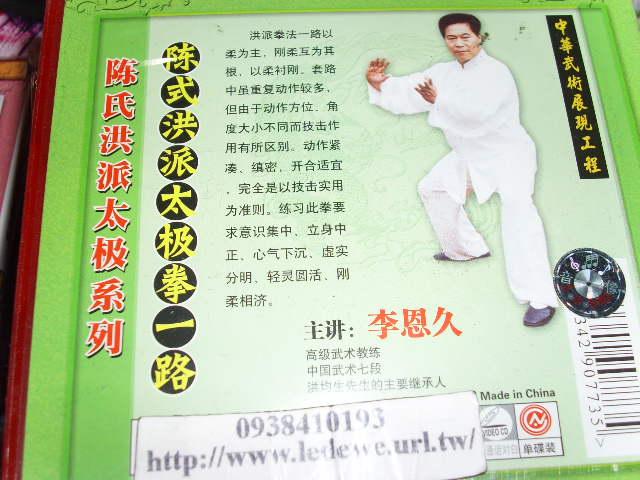 陈氏洪派太极系列
陈式洪派太极拳一路
洪派拳法一路以
柔为主，刚柔互为其
根，以柔衬刚。套路
中虽重复动作较多，
但由于动作方位、角
度大小不同而技击作
用有所区别。动作紧
凑、缜密，开合适宜
，完全是以技击实用
为准则。练习此拳要
求意识集中、立身中
正、心气下沉、虚实
分明、轻灵圆活、刚
柔相济。
主讲：李恩久
高级武术教练
中国武术七段
洪均生先生的主要继承人
中華武術展現工程
Made in China
VIDEO CD
单碟装
0938410193
http://www.ledewe.url.tw/